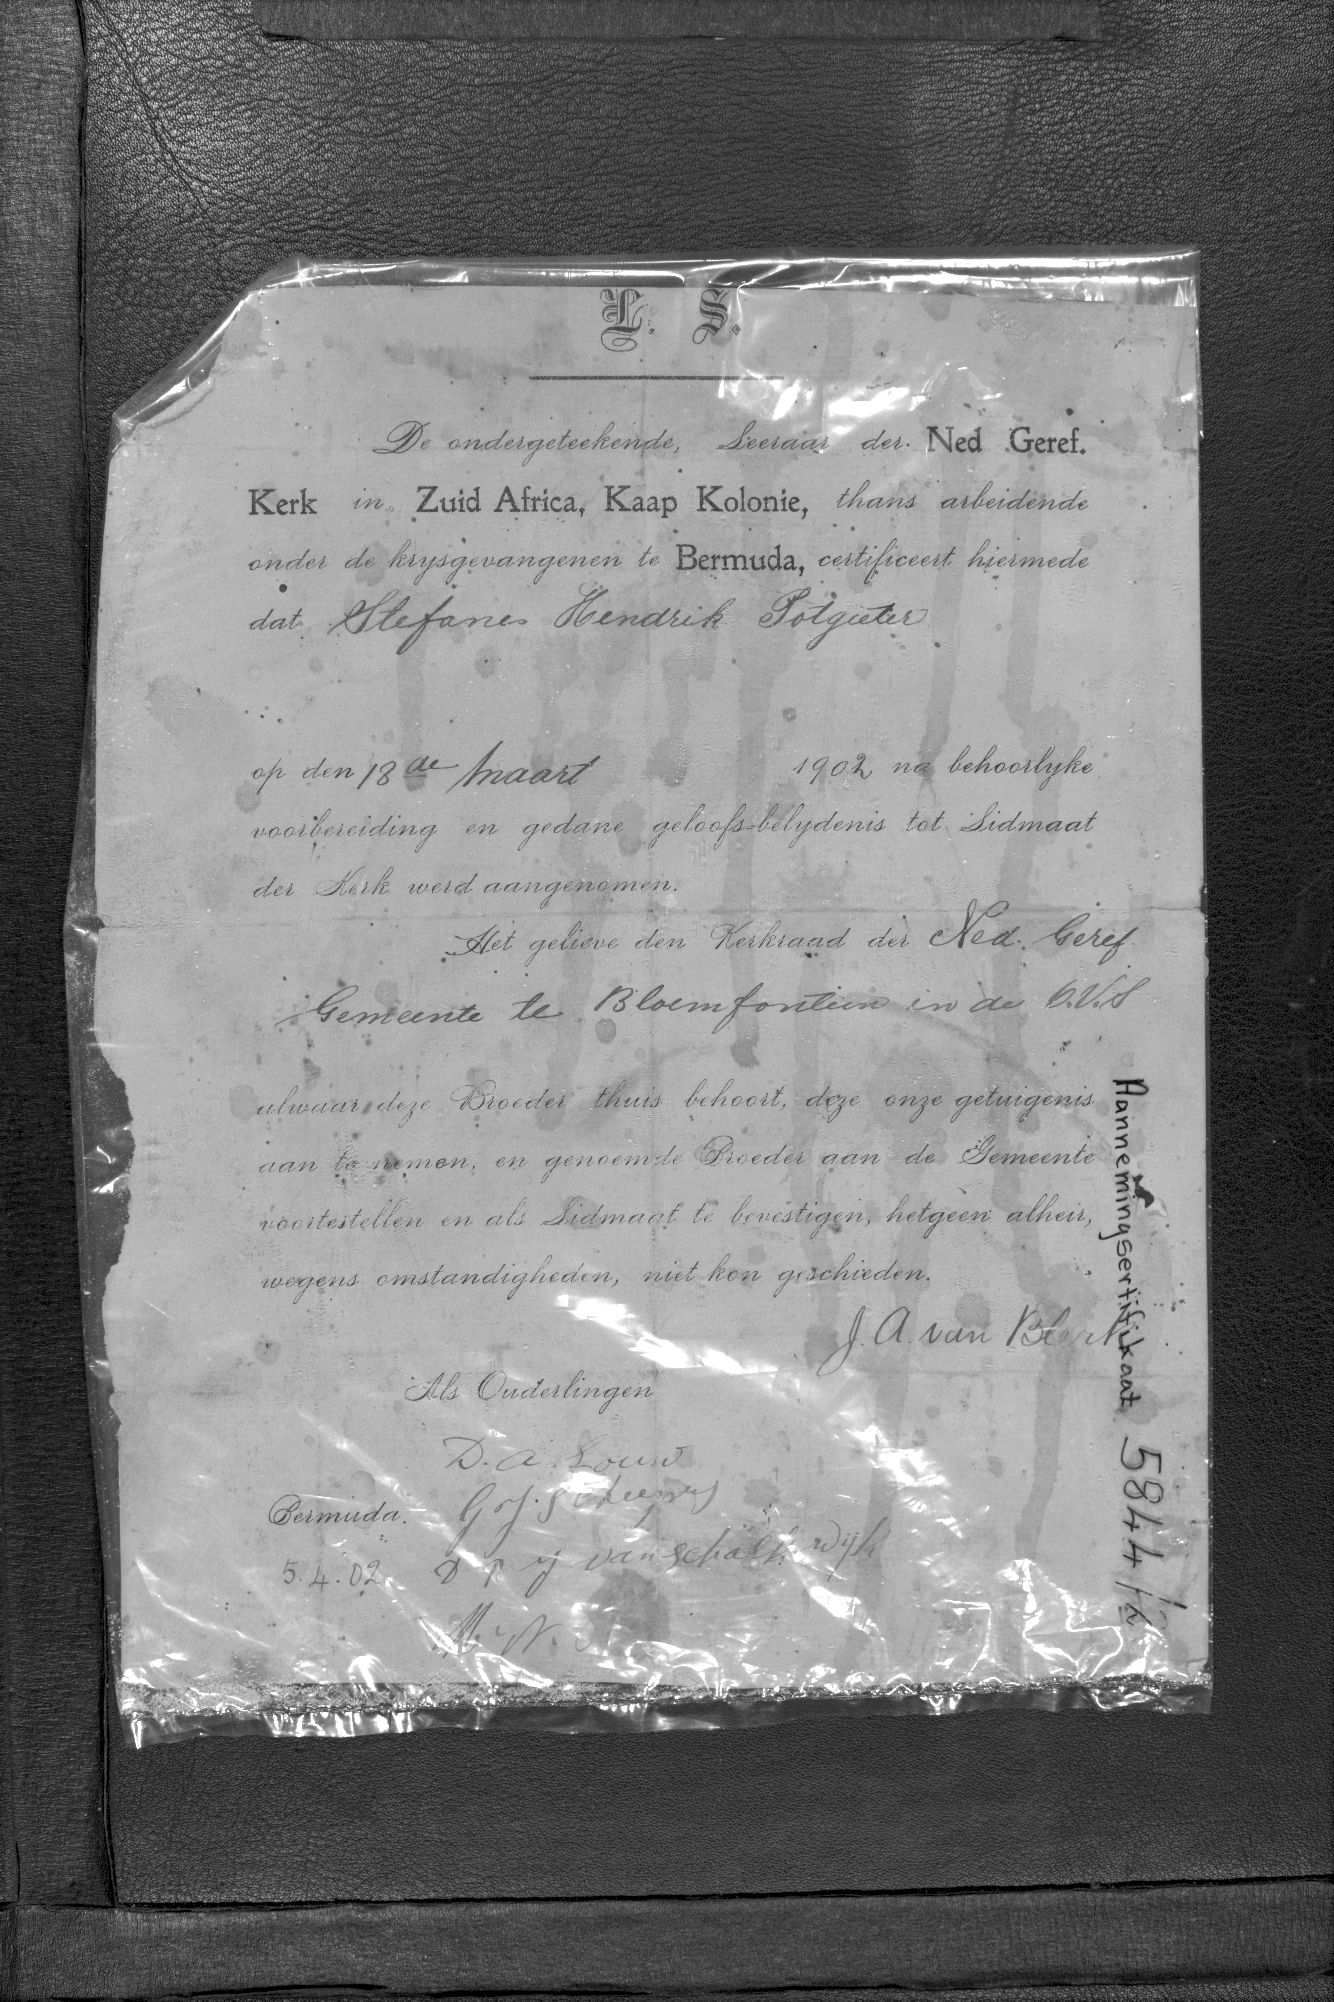 L. S.
De ondergeteekende, Leeraar der Ned Geref.
Kerk in Zuid Africa, Kaap Kolonie, thans arbeidende
onder de krysgevangenen te Bermuda, certificeert hiermede
dat Stefanes Hendrik Potgieter
op den 18de Maart 1902 na behoorlyke
voorbereiding en gedane geloofs-belydenis tot Lidmaat
der Kerk werd aangenomen.
Het gelieve den Kerkraad der Ned. Geref
Gemeente te Bloemfontein in de O.V.S
alwaar deze Broeder thuis behoort, deze onze getuigenis
aan te nemen, en genoemde Broeder aan de Gemeente
voortestellen en als Lidmaat te bevestigen, hetgeen alheir,
wegens omstandigheden, niet kon geschieden.
J. A. van Blerk
Als Ouderlingen
D. A. Louw
G. J. Scheepers
Bermuda.
van Schalkwijk
5.4.02
Aannemingsertifikaat 5844/2